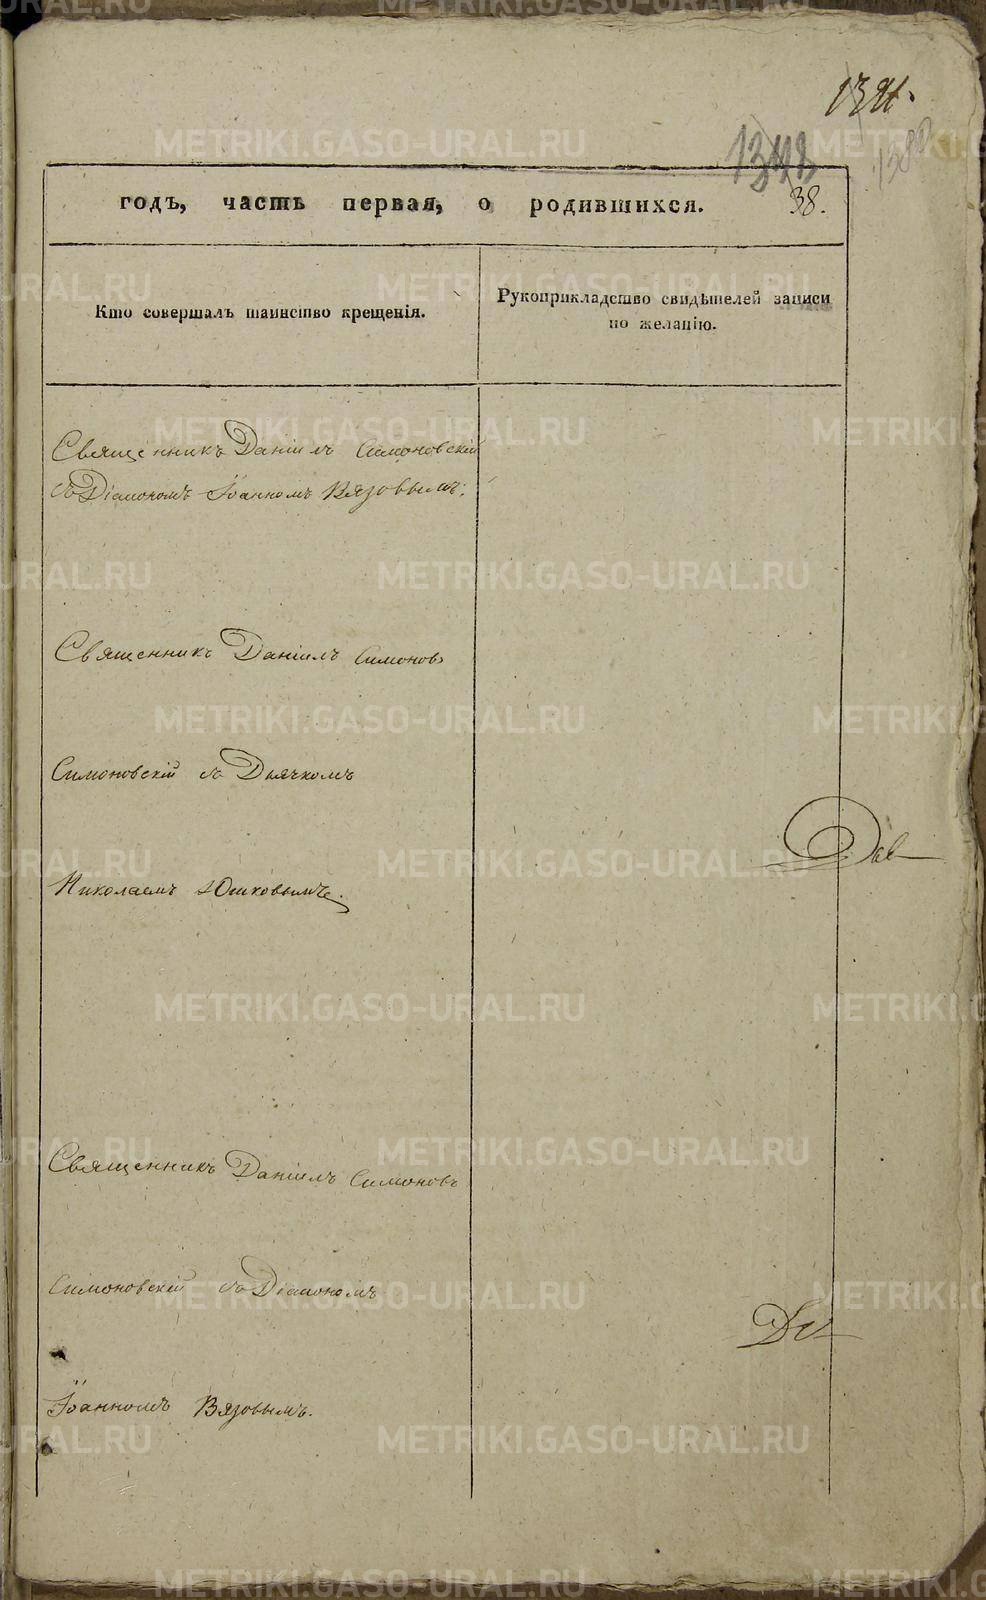 1348
1380
годъ, часть первая, о родившихся. 38.
Кто совершалъ таинство крещенія.
Рукоприкладство свидѣтелей записи
по желанію.
Священникъ Даніилъ Симоновскій
съ Діакономъ Іоанномъ Вязовымъ;
Священникъ Даніилъ Симонов
Симоновскій съ Дьячкомъ
Николаемъ Юшковымъ.
Священникъ Даніилъ Симоновъ
Симоновскій съ Діакономъ
Іоанномъ Вязовымъ.
METRIKI.GASO-URAL.RU